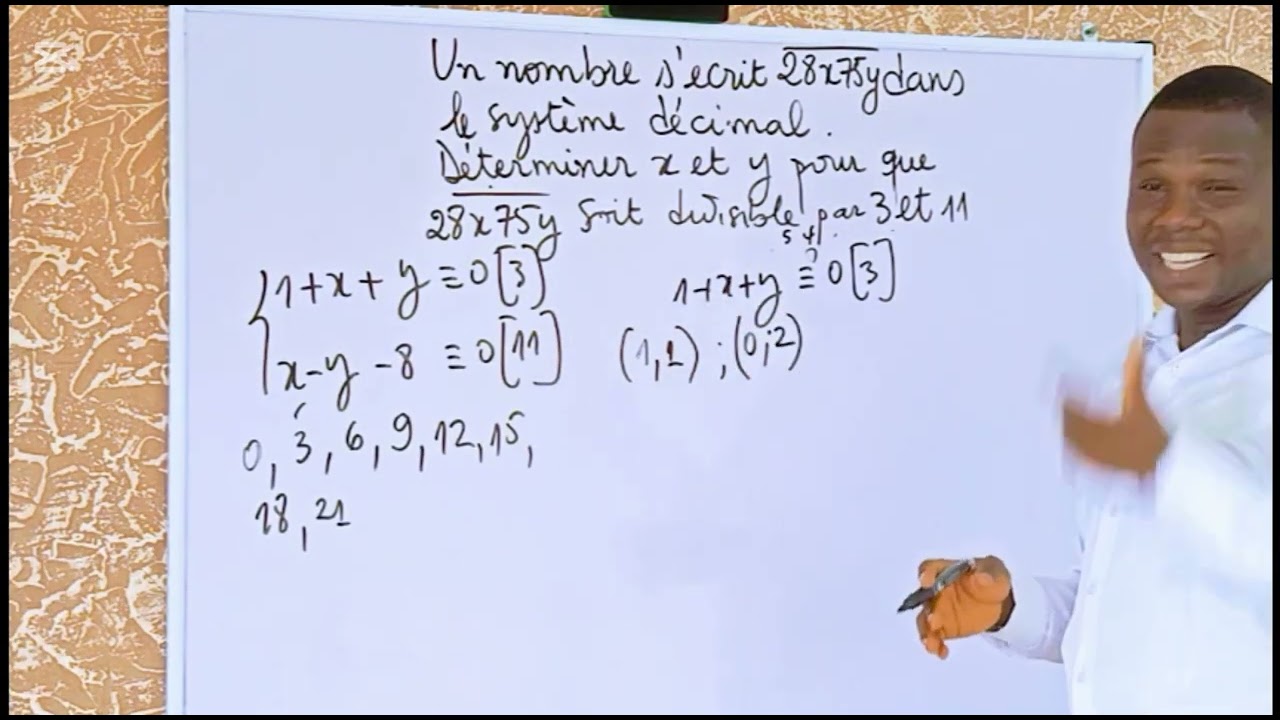 Un nombre s'ecrit 28x75y dans
le système décimal.
Déterminer x et y pour que
28x75y soit divisible par 3 et 11
1+x+y ≡ 0[3]
x-y-8 ≡ 0[11]
0, 3, 6, 9, 12, 15,
18, 21
5 4
1+x+y ≡ 0[3]
(1,1) ; (0;2)